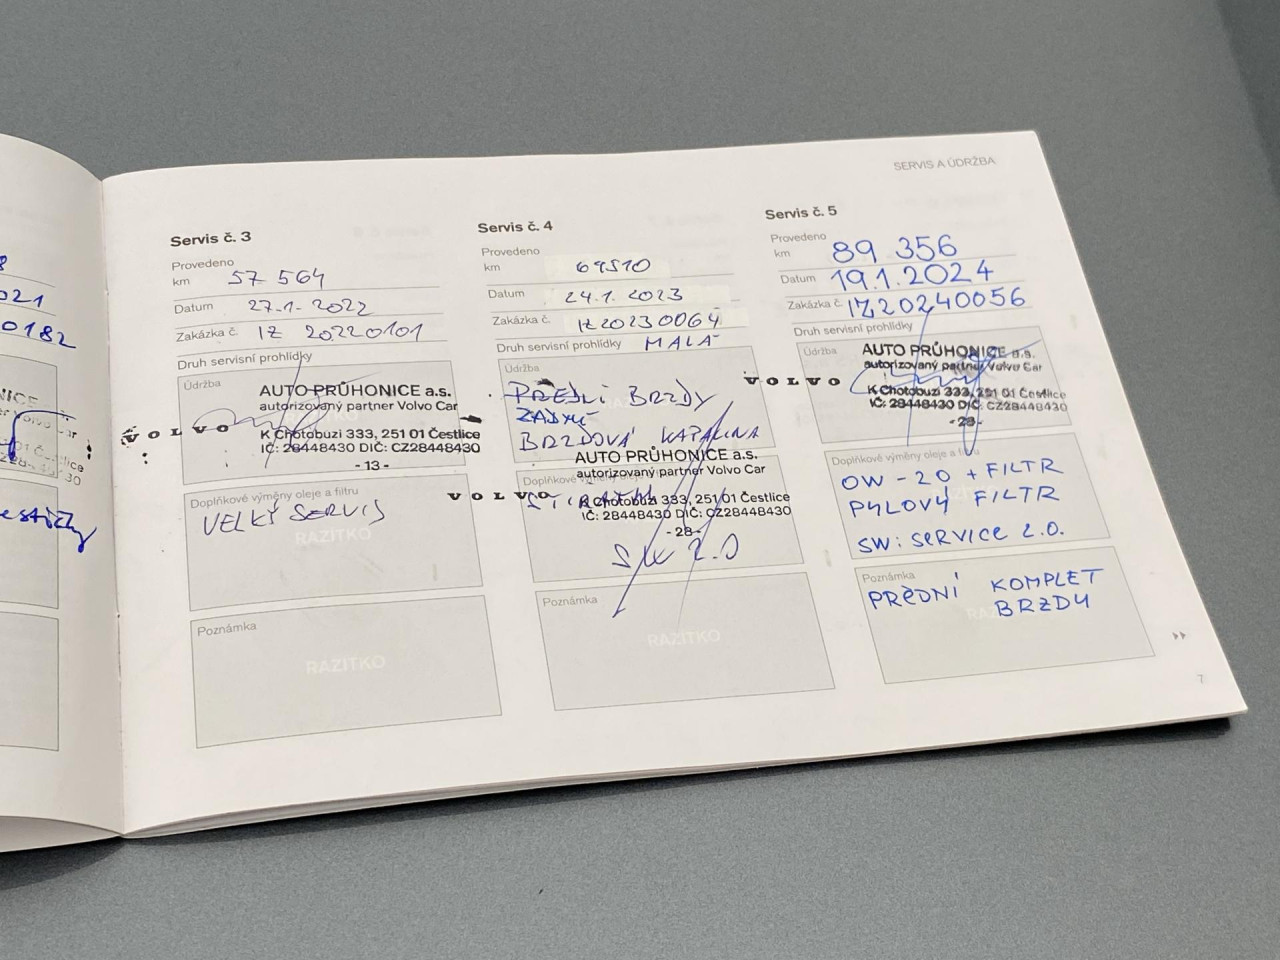 021
0182
SERVIS A ÚDRŽBA
Servis č. 3
Provedeno
km 57 564
Datum 27.1.2022
Zakázka č. IZ 20220101
Druh servisní prohlídky
Údržba
AUTO PRŮHONICE a.s.
autorizovaný partner Volvo Car
VOLVO
K Chotobuzi 333, 251 01 Čestlice
IČ: 28448430 DIČ: CZ28448430
- 13 -
Doplňkové výměny oleje a filtru
VELKÝ SERVIS
RAZÍTKO
Poznámka
RAZÍTKO
Servis č. 4
Provedeno
km 69510
Datum 24.1.2023
Zakázka č. IZ20230064
Druh servisní prohlídky MALÁ
Údržba
PŘEDNÍ BRZDY
ZADNÍ
BRZDOVÁ KAPALINA
AUTO PRŮHONICE a.s.
autorizovaný partner Volvo Car
VOLVO
K Chotobuzi 333, 251 01 Čestlice
IČ: 28448430 DIČ: CZ28448430
- 28 -
SW 2.0
Poznámka
RAZÍTKO
Servis č. 5
Provedeno
km 89 356
Datum 19.1.2024
Zakázka č. IZ20240056
Druh servisní prohlídky
Údržba
AUTO PRŮHONICE a.s.
autorizovaný partner Volvo Car
VOLVO
K Chotobuzi 333, 251 01 Čestlice
IČ: 28448430 DIČ: CZ28448430
- 28 -
Doplňkové výměny oleje a filtru
OW - 20 + FILTR
PYLOVÝ FILTR
SW: SERVICE 2.0.
Poznámka
PŘEDNÍ KOMPLET
BRZDY
7